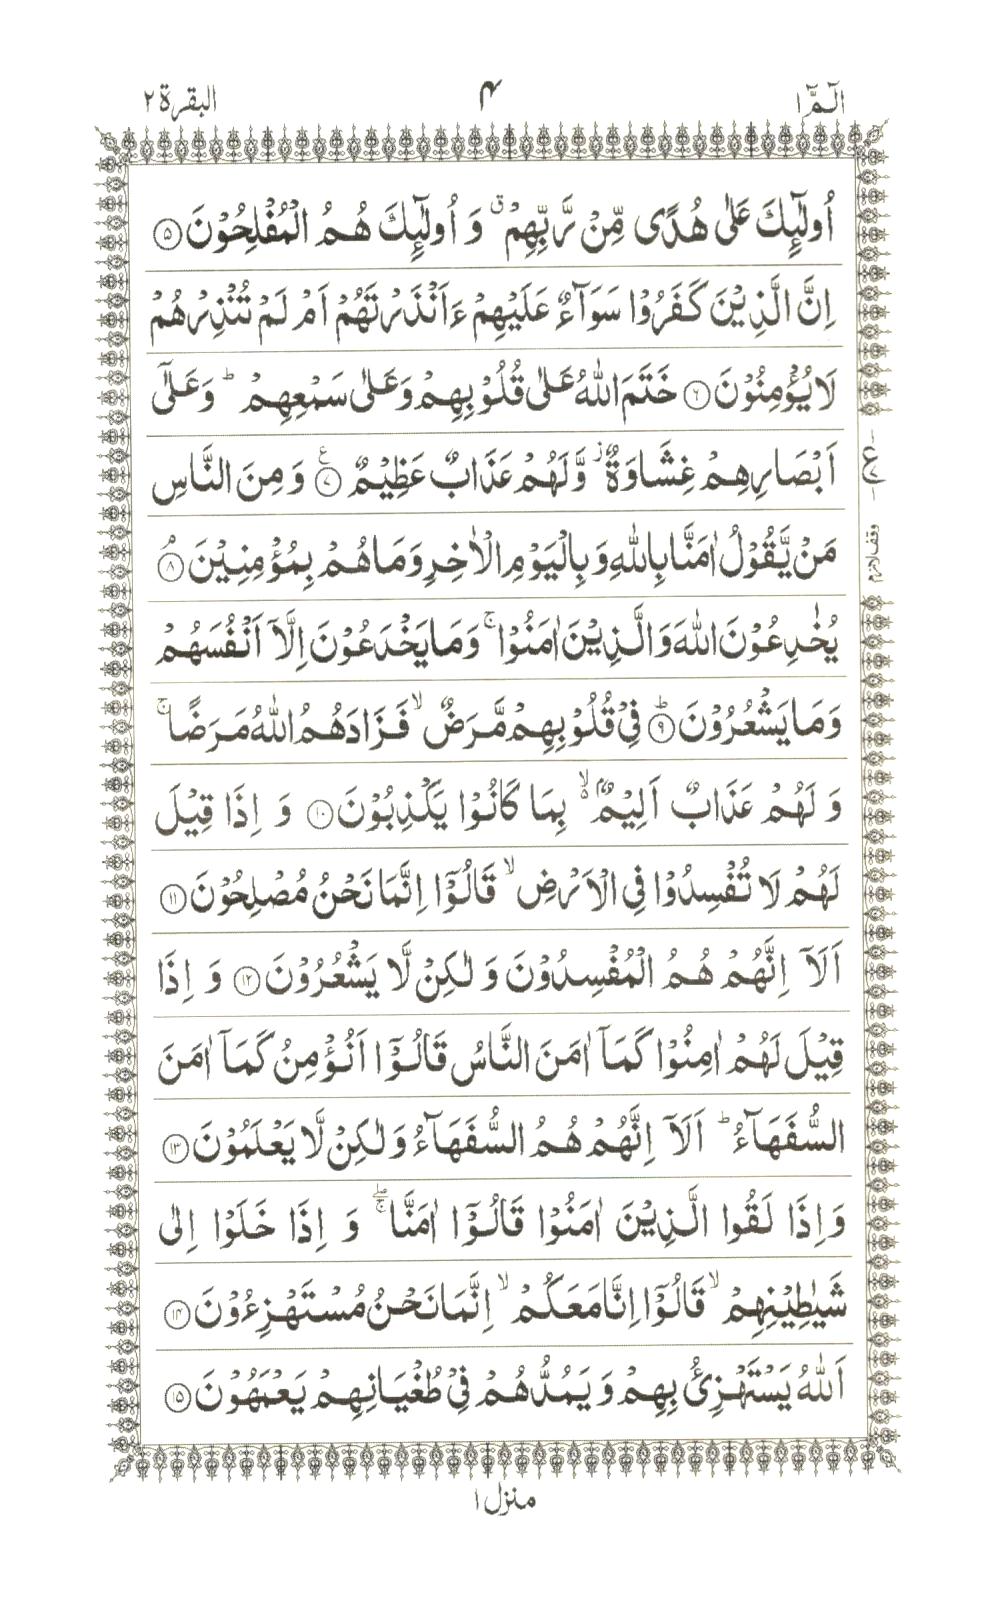 الٓمّٓ ١ ٤ البقرة ٢
اُولٰٓئِكَ عَلٰى هُدًى مِّنْ رَّبِّهِمْ ۗ وَ اُولٰٓئِكَ هُمُ الْمُفْلِحُوْنَ ۝۵
اِنَّ الَّذِيْنَ كَفَرُوْا سَوَآءٌ عَلَيْهِمْ ءَاَنْذَرْتَهُمْ اَمْ لَمْ تُنْذِرْهُمْ
لَا يُؤْمِنُوْنَ ۝۶ خَتَمَ اللّٰهُ عَلٰى قُلُوْبِهِمْ وَعَلٰى سَمْعِهِمْ ؕ وَعَلٰٓى
اَبْصَارِهِمْ غِشَاوَةٌ ؗ وَّلَهُمْ عَذَابٌ عَظِيْمٌ ۝۷ع وَمِنَ النَّاسِ
ع
۷
مَنْ يَّقُوْلُ اٰمَنَّا بِاللّٰهِ وَبِالْيَوْمِ الْاٰخِرِ وَمَا هُمْ بِمُؤْمِنِيْنَ ۝۸ۘ
وقف لازم
يُخٰدِعُوْنَ اللّٰهَ وَالَّذِيْنَ اٰمَنُوْا ۚ وَمَا يَخْدَعُوْنَ اِلَّآ اَنْفُسَهُمْ
وَمَا يَشْعُرُوْنَ ۝۹ؕ فِيْ قُلُوْبِهِمْ مَّرَضٌ ۙ فَزَادَهُمُ اللّٰهُ مَرَضًا ۚ
وَ لَهُمْ عَذَابٌ اَلِيْمٌۢ ۙ بِمَا كَانُوْا يَكْذِبُوْنَ ۝۱۰ وَ اِذَا قِيْلَ
لَهُمْ لَا تُفْسِدُوْا فِي الْاَرْضِ ۙ قَالُوْٓا اِنَّمَا نَحْنُ مُصْلِحُوْنَ ۝۱۱
اَلَآ اِنَّهُمْ هُمُ الْمُفْسِدُوْنَ وَ لٰكِنْ لَّا يَشْعُرُوْنَ ۝۱۲ وَ اِذَا
قِيْلَ لَهُمْ اٰمِنُوْا كَمَآ اٰمَنَ النَّاسُ قَالُوْٓا اَنُؤْمِنُ كَمَآ اٰمَنَ
السُّفَهَآءُ ؕ اَلَآ اِنَّهُمْ هُمُ السُّفَهَآءُ وَلٰكِنْ لَّا يَعْلَمُوْنَ ۝۱۳
وَاِذَا لَقُوا الَّذِيْنَ اٰمَنُوْا قَالُوْٓا اٰمَنَّا ۖۚ وَ اِذَا خَلَوْا اِلٰى
شَيٰطِيْنِهِمْ ۙ قَالُوْٓا اِنَّا مَعَكُمْ ۙ اِنَّمَا نَحْنُ مُسْتَهْزِءُوْنَ ۝۱۴
اَللّٰهُ يَسْتَهْزِئُ بِهِمْ وَيَمُدُّهُمْ فِيْ طُغْيَانِهِمْ يَعْمَهُوْنَ ۝۱۵
منزل ١